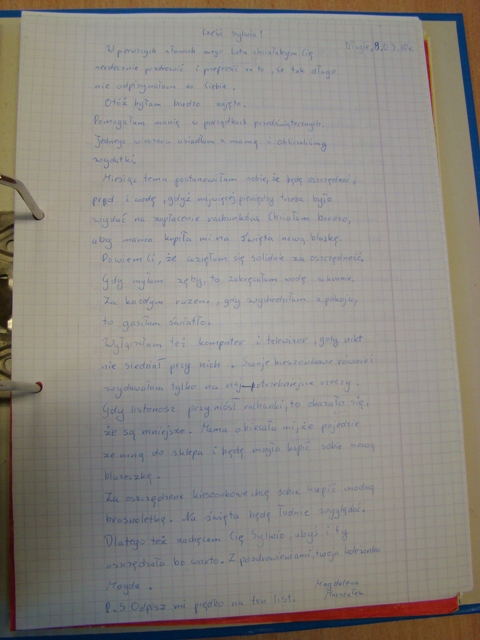 Cześć Sylwia!
Długie, 9.03.10r.
W pierwszych słowach mego listu chciałabym Cię
serdecznie pozdrowić i przeprosić za to, że tak długo
nie odpisywałam na Ciebie.
Otóż byłam bardzo zajęta.
Pomagałam mamie w porządkach przedświątecznych.
Jednego wieczoru usiadłam z mamą i obliczałyśmy
wydatki.
Miesiąc temu postanowiłam sobie, że będę oszczędzać,
prąd i wodę, gdyż najwięcej pieniędzy trzeba było
wydać na zapłacenie rachunków. Chciałam bardzo,
aby mama kupiła mi na święta nową bluzkę.
Powiem Ci, że wzięłam się solidnie za oszczędność.
Gdy myłam zęby, to zakręcałam wodę w kranie.
Za każdym razem, gdy wychodziłam z pokoju,
to gasiłam światło.
Wyłączałam też komputer i telewizor, gdy nikt
nie siedział przy nich. Swoje kieszonkowe również
wydawałam tylko na najpotrzebniejsze rzeczy.
Gdy listonosz przyniósł rachunki, to okazało się,
że są mniejsze. Mama obiecała mi, że pojedzie
ze mną do sklepu i będę mogła kupić sobie nową
bluzeczkę.
Za oszczędzone kieszonkowe chcę sobie kupić modną
bransoletkę. Na święta będę ładnie wyglądać.
Dlatego też zachęcam Cię Sylwio, abyś i ty
oszczędzała bo warto. Z pozdrowieniami, twoja koleżanka
Magda.
Magdalena
P.S. Odpisz mi prędko na ten list.